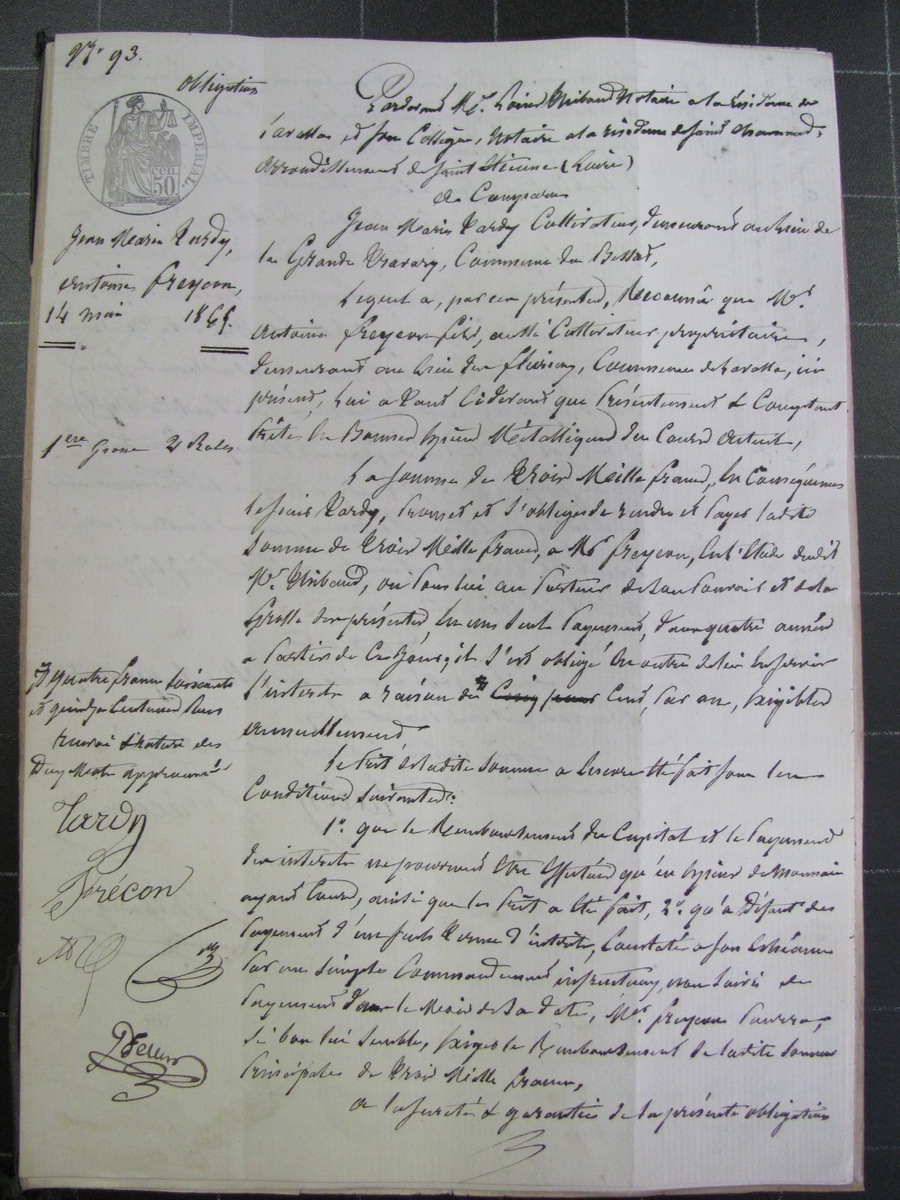 N° 93.
obligation
TIMBRE IMPERIAL.
50
CEN.
Jean Marie Tardy,
Antoine Freycon,
14 mai 1865.
1ere Grosse 2 Roles
quatre francs soixante
et quinze centimes
renvoi & rature
approuvés
Tardy
Frécon
Pardevant Me. Notaire a la résidence de
Tarattas et son Collègue, Notaire a la résidence de Saint Chamond,
Arrondissement de Saint Etienne (Loire)
a Comparu
Jean Marie Tardy Cultivateur, demeurant au lieu de
la Grande Commune du Bessat,
Lequel a, par ces présentes, Reconnu que Mr.
Antoine Freycon fils, aussi Cultivateur propriétaire,
demeurant au lieu du Commune de Tarattas, ici
présent, lui a tant cidevant que Présentement & Comptant
Prêté En Bonnes Espèces Métalliques du Cours Actuel,
La somme de Trois Mille francs, En Conséquence
le sieur Tardy, Promet et s'oblige de rendre et Payer ladite
Somme de Trois Mille francs, a Mr Freycon, En l'Etude dudit
Me. Thibaud, ou Pour lui au Porteur de Son Pouvoir et de la
Grosse des présentes En un Seul Payement, dans quatre années
a Partir de Ce Jour, il s'est obligé En outre de lui En Servir
l'interets a raison de Cinq pour Cent, Par an, Exigibles
annuellement
Le Prêt de ladite somme a Encore Eté fait sous les
Conditions suivantes:
1°. que le Remboursement du Capital et le Payement
des interets ne pourront Etre Effectués qu'en Espèces de Monnaie
ayant Cours, ainsi que les Prêt a Eté fait, 2°. qu'a Défaut des
Payement d'une seule Terme d'intérêts, Constaté a son Echéance
Par une Simple Commandement infructueux, non Suivi de
Payement dans le Mois de Sa date, Mr. Freycon Pourra,
Si bon lui Semble, Exiger le Remboursement de ladite Somme
Principale de Trois Mille francs,
a la sureté & garantie de la présente obligation